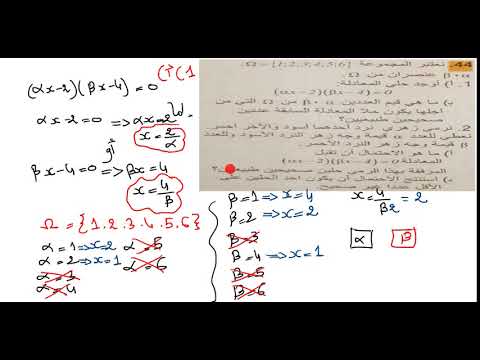 44. نعتبر المجموعة Ω={1;2;3;4;5;6}.
α و β عنصران من Ω.
1. أ) أوجد حلي المعادلة
(αx-2)(βx-4)=0
ب) ما هي قيم العددين α و β من Ω التي من
أجلها يكون حلا المعادلة السابقة عددين
صحيحين طبيعيين؟
2. نرمي زهرتي نرد أحدهما أسود والآخر أحمر.
نعطي العدد α قيمة وجه زهر النرد الأسود وللعدد
β قيمة وجه زهر النرد الأحمر.
أ) ما هو الاحتمال أن تقبل
المعادلة (αx-2)(βx-4)=0
المرفقة بهذا الرمي حلين صحيحين طبيعيين؟
ب) استنتج الاحتمال أن يكون أحد الحلين على
الأقل عددا غير صحيح.
1) أ)
(αx-2)(βx-4)=0
αx-2=0 ⇒ αx=2
x=2/α
أو
βx-4=0 ⇒ βx=4
x=4/β
Ω={1.2.3.4.5.6}
α=1 ⇒ x=2
α=2 ⇒ x=1
α=3
α=4
α=5
α=6
β=1 ⇒ x=4
β=2 ⇒ x=2
β=3
β=4 ⇒ x=1
β=5
β=6
x=4/β2=2
α
β